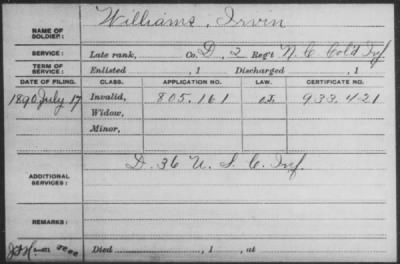 NAME OF SOLDIER: Williams, Irvin
SERVICE: Late rank, Co. D, 2 Reg't N.C. Col'd Inf.
TERM OF SERVICE: Enlisted , 1 Discharged , 1
DATE OF FILING. CLASS. APPLICATION NO. LAW. CERTIFICATE NO.
1890, July 17 Invalid, 805.161 933.421
Widow,
Minor,
ADDITIONAL SERVICES: D. 36 U.S.C. Inf.
REMARKS:
Died , 1 , at